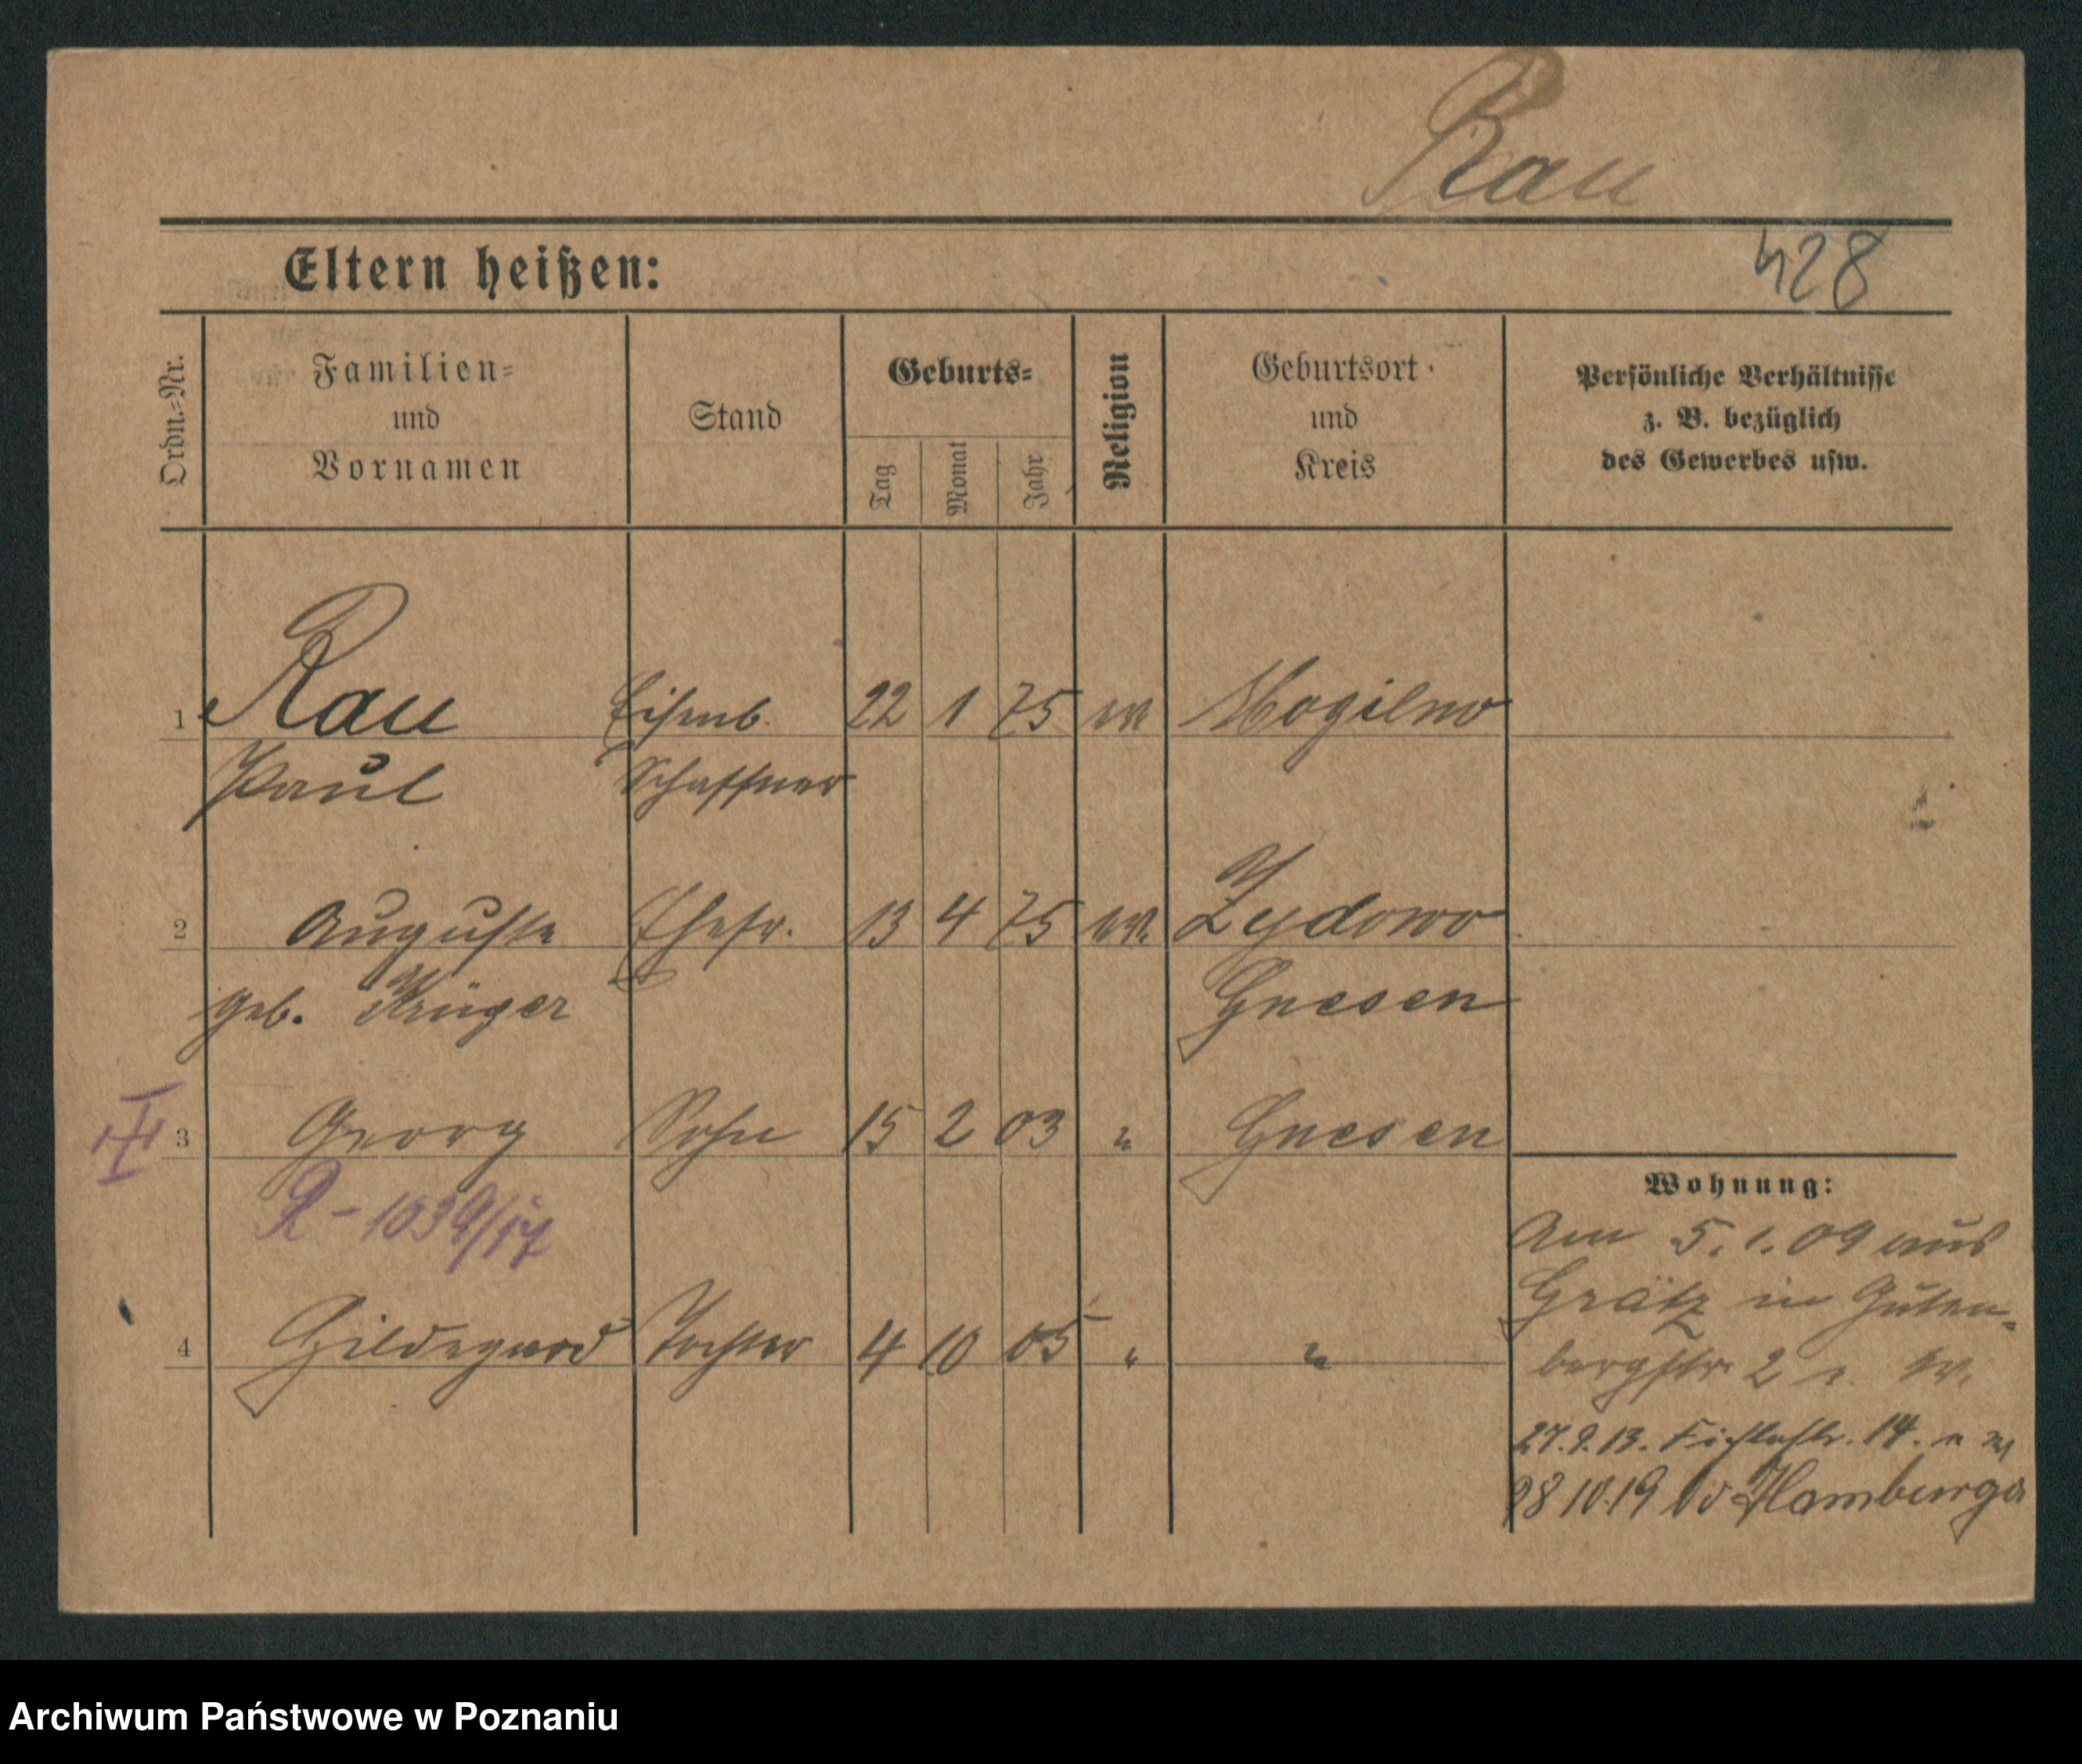 Rau
428
Eltern heißen:
Ordn.-Nr.
Familien- und Vornamen
Stand
Geburts-
Tag
Monat
Jahr
Religion
Geburtsort und Kreis
Persönliche Verhältnisse
z. B. bezüglich
des Gewerbes usw.
1 Rau Eisenb. 22 1 75 ev Mogilno
Paul Schaffner
2 Auguste Ehefr. 13 4 75 ev. Zydowo
geb. Krüger Gnesen
3 Georg Sohn 15 2 03 " Gnesen
R-1039/17
4 Hildegard Tochter 4 10 05 " "
Wohnung:
Am 5.1.09 aus
Grätz in Guten-
bergstr 2
27.9.13. 14.
28 10.19 Hamburg
Archiwum Państwowe w Poznaniu